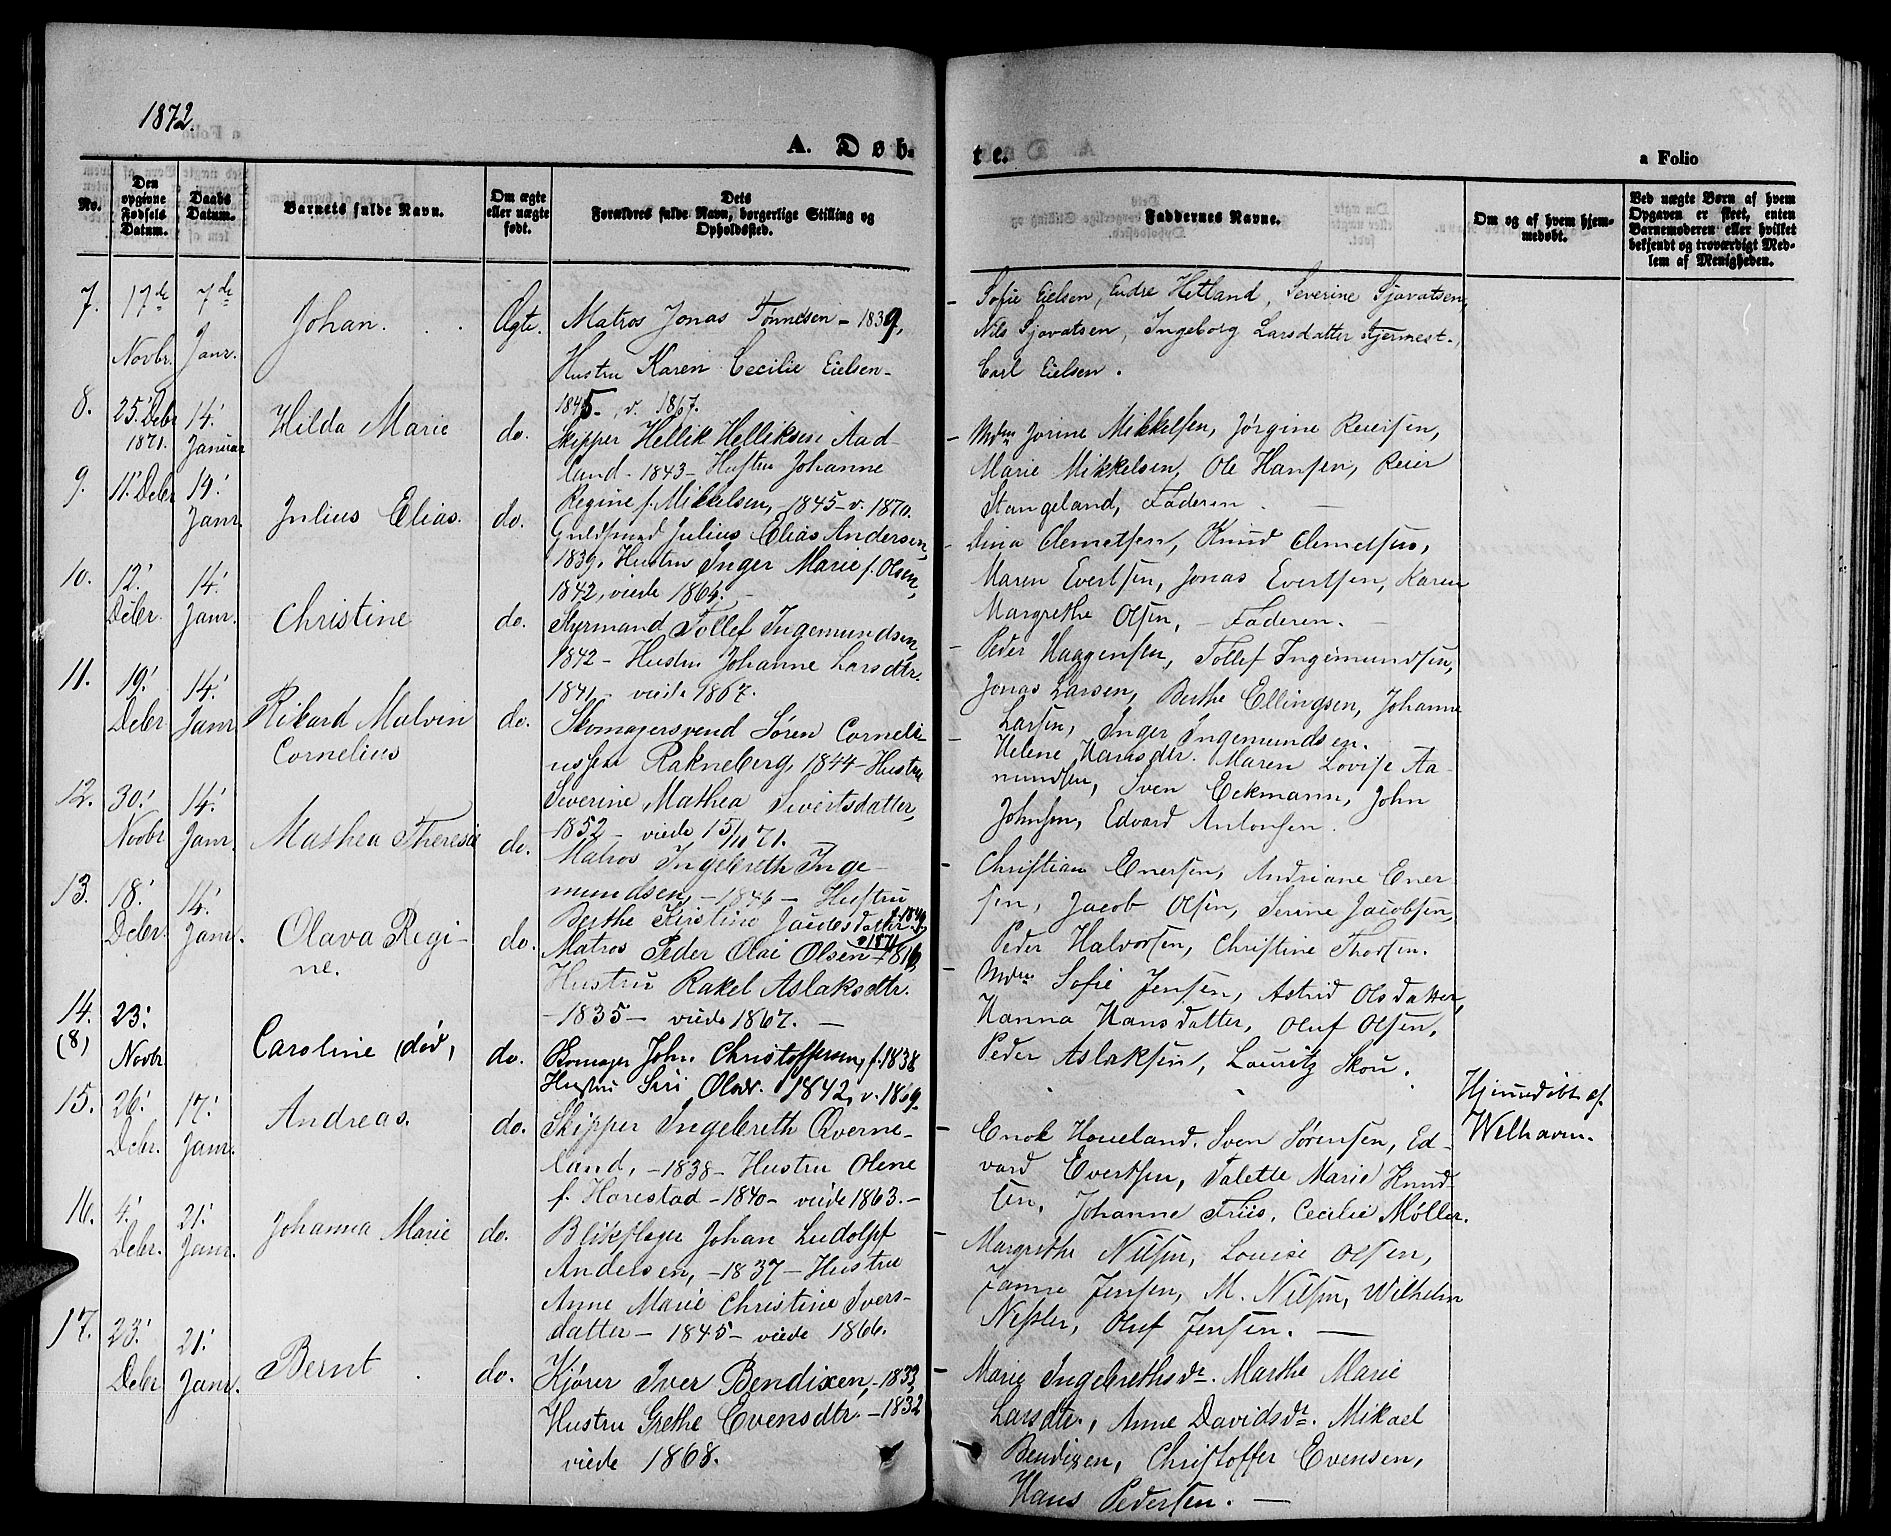 1872.
A. Døb-
te.
a Folio
No.
Den opgivne Fødsels Datum.
Daabs Datum.
Barnets fulde Navn.
Om ægte eller uægte født.
Dets Forældres fulde Navn, borgerlige Stilling og Opholdssted.
Faddernes Navne.
Om og af hvem hjemmedøbt.
Ved uægte Børn af hvem Opgaven er skeet, enten Barnemoderen eller hvilket bekjendt og troværdigt Medlem af Menigheden.
7. 17de Novbr. 7de Janr. Johan. Ægte.
Matros Jonas Tønnesen - 1839,
Hustru Karen Cecilie Eielsen -
1845 -, v. 1867.
- Sofie Eielsen, Endre Hetland, Severine Sjovatsen,
Nils Sjovatsen, Ingeborg Larsdatter Stjernest.,
Carl Eielsen.
8. 25' Debr 1871. 14' Januar Hilda Marie do.
Skipper Hellik Helliksen Aad-
land - 1843 - Hustru Johanne
Regine f. Mikkelsen, - 1845 - v. 1870.
- Mdm Jorine Mikkelsen, Jørgine Reiersen,
Marie Mikkelsen, Ole Hansen, Reier
Stangeland, Faderen. -
9. 11' Debr 14' Janr. Julius Elias. do.
Guldsmed Julius Elias Andersen,
1839, Hustru Inger Marie f. Olsen,
1842, viede 1865. -
- Dina Clemetsen, Knud Clemetsen,
Maren Evertsen, Jonas Evertsen, Karen
Margrethe Olsen, - Faderen. -
10. 12' Debr. 14' Janr. Christine do.
Styrmand Tollef Ingemundsen,
1842 - Hustru Johanne Larsdtr.
1841 - viede 1867.
- Peder Haggensen, Tollef Ingemundsen,
Jonas Larsen, Berthe Ellingsen, Johanne
Larsen, Inger Ingemundsen.
11. 19' Debr 14' Janr Rikard Malvin
Cornelius do.
Skomagersvend Søren Corneli-
ussen Rakneberg, 1844 - Hustru
Severine Mathea Sivertsdatter,
- 1852 - viede 15/11 71.
- Helene Hansdtr. Maren Lovise Aa-
mundsen, Sven Eckmann, John
Johnsen, Edvard Antonsen.
12. 30' Novbr 14' Janr. Mathea Theresie do.
Matros Ingebreth Inge-
mundsen, - 1846 - Hustru
Berthe Kristine Jaudesdatter f. 1849,
v 1871
- Christian Enersen, Andriane Ener-
sen, Jacob Olsen, Serine Jacobsen,
Peder Halvorsen, Christine Thorsen.
13. 18' Debr. 14' Janr. Olava Regi-
ne. do.
Matros Peder Olai Olsen
Hustru Rakel Aslaksdtr.
- 1835 - viede 1867. -
- Mdm Sofie Jensen, Astrid Olsdatter,
Hanna Hansdatter, Oluf Olsen,
Peder Aslaksen, Lauritz Skou.
14. (8) 23' Novbr Caroline (død, do.
Skomager John Christoffersen, f. 1838
Hustru Siri Olsdr. 1842, v. 1869.
15. 26' Debr. 17' Janr. Andreas. do.
Skipper Ingebreth Qverne-
land, - 1838 - Hustru Olene
f. Harestad - 1840 - viede 1863. -
- Enok Houeland. Sven Sørensen, Ed-
vard Evertsen, Talette Marie Knud-
sen, Johanne Friis, Cecilie Møller.
Hjemmedøbt af
Welhaven.
16. 4' Debr. 21' Janr. Johanna Marie do.
Blikslager Johan Ludolpf
Andersen, - 1837 - Hustru
Anne Marie Christine Ivers-
datter - 1845 - viede 1866.
- Margrethe Nilsen, Louise Olsen,
Janne Jensen, M. Nilsen, Wilhelm
Nessler, Oluf Jensen. -
17. 23' Debr 21' Janr. Bernt. do.
Kjører Iver Bendixen, - 1833,
Hustru Grethe Evensdtr. - 1832
viede 1868.
- Marie Ingebrethsdr. Marthe Marie
Larsdtr., Anne Davidsdr. Mikael
Bendixen, Christoffer Evensen,
Hans Pedersen. -